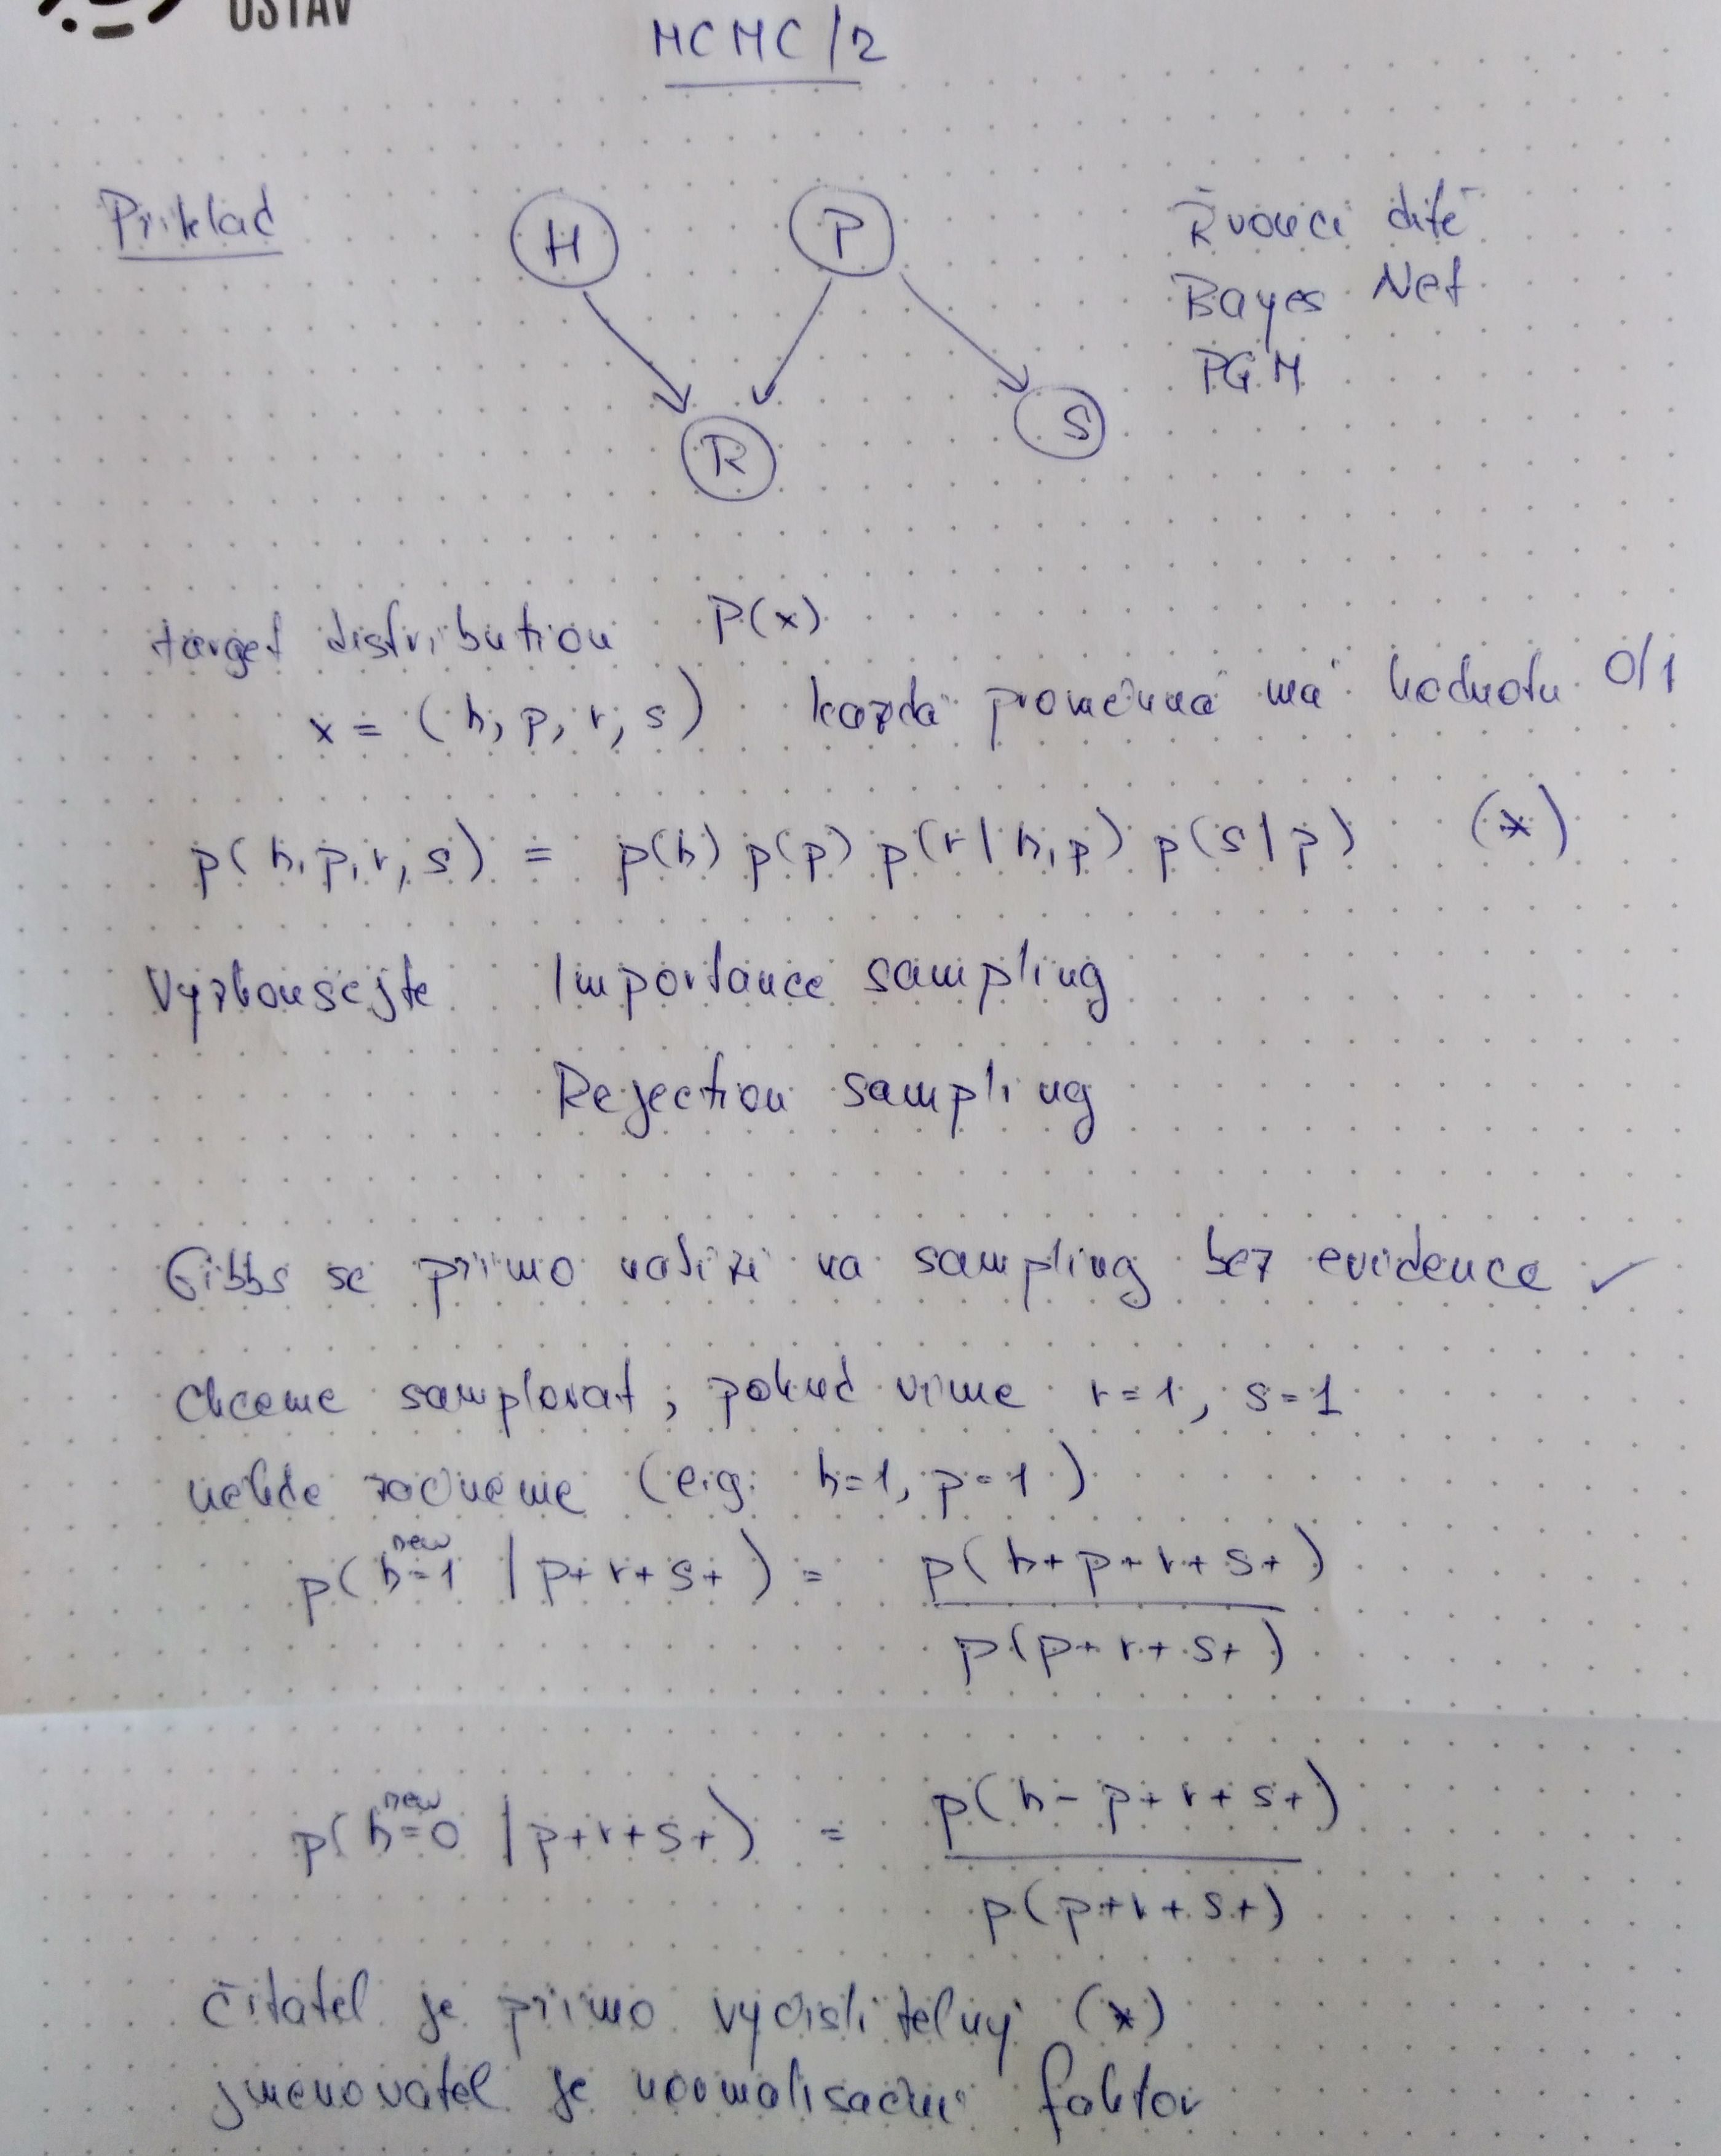 ÚSTAV
MCMC/2
Příklad
H
P
Řvoucí dítě
Bayes Net
PGM
R
S
target distribution P(x)
x = (h, p, r, s) každá proměnná má hodnotu 0/1
p(h, p, r, s) = p(h) p(p) p(r | h, p) p(s | p) (*)
Vyzkoušejte Importance sampling
Rejection sampling
Gibbs se přímo nabízí na sampling bez evidence ✓
Chceme samplovat, pokud víme r=1, s=1
někde začneme (e.g. h=1, p=1)
p(h^new=1 | p+ r+ s+) = p(h+ p+ r+ s+)
p(p+ r+ s+)
p(h^new=0 | p+ r+ s+) = p(h- p+ r+ s+)
p(p+ r+ s+)
čitatel je přímo vyčíslitelný (*)
jmenovatel je normalisační faktor